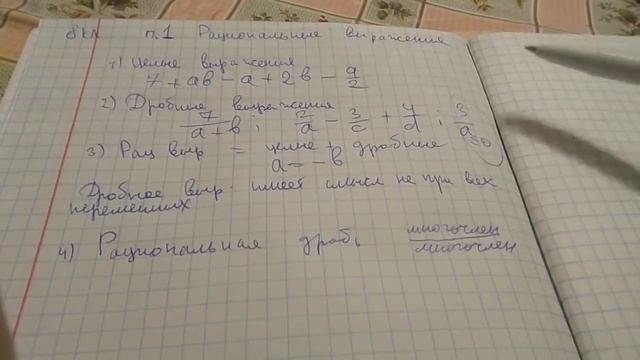 8 кл п.1 Рациональные выражения
1) Целые выражения
7 + ab - a + 2b - a/2
2) Дробные выражения
7/(a+b) ; 2/a - 3/c + 4/d ; 3/a
3) Рац выр = целые + дробные
a = -b
Дробное выр имеет смысл не при всех
переменных
4) Рациональная дробь многочлен/многочлен